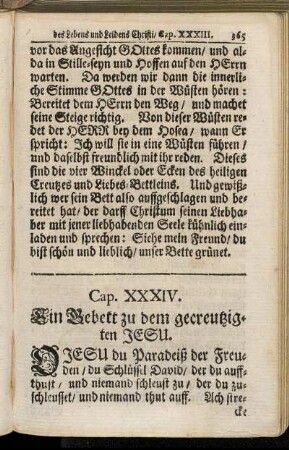 des Lebens und Leidens Christi/ Cap. XXXIII. 365
vor das Angesicht GOttes kommen/ und al-
da in Stille-seyn und Hoffen auf den HErrn
warten. Da werden wir dann die innerli-
che Stimme GOttes in der Wüsten hören:
Bereitet dem HErrn den Weg/ und machet
seine Steige richtig. Von dieser Wüsten re-
det der HERR bey dem Hosea/ wann Er
spricht: Ich will sie in eine Wüsten führen/
und daselbst freundlich mit ihr reden. Dieses
sind die vier Winckel oder Ecken des heiligen
Creutzes und Liebes-Bettleins. Und gewiß-
lich wer sein Bett also auffgeschlagen und be-
reitet hat/ der darff Christum seinen Liebha-
ber mit jener liebhabenden Seele kühnlich ein-
laden und sprechen: Siehe mein Freund/ du
bist schön und lieblich/ unser Bette grünet.
Cap. XXXIV.
Ein Gebett zu dem gecreutzig-
ten JESU.
O JESU du Paradeiß der Freu-
den/ du Schlüssel David/ der du auff-
thust/ und niemand schleust zu/ der du zu-
schleussest/ und niemand thut auff. Ach stre-
cke